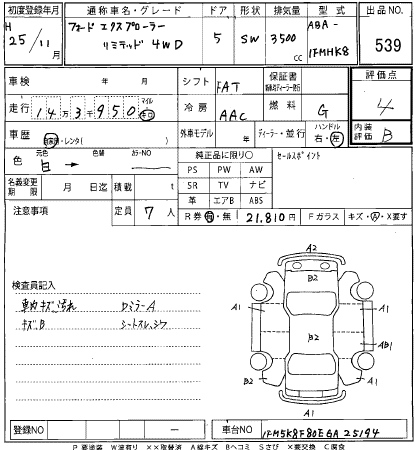 初度登録年月 通称車名・グレード ドア 形状 排気量 型式 出品NO.
H 25/11月 フォード エクスプローラー リミテッド 4WD 5 SW 3500 CC ABA- 1FMHK8 539
車検 年 月 シフト FAT 保証書 評価点 4
走行 14万3千950 マイル キロ 冷房 AAC 燃料 G 内装評価 B
車歴 自家用・レンタ( ) 外車モデル 年 ディーラー・並行 ハンドル 右・左
色 元色 白 → 色替 カラーNO 純正品に限り○ セールスポイント
PS PW AW
名義変更期限 月 日迄 積載 t SR TV ナビ
革 エアB ABS
注意事項 定員 7人 R券 有・無 21,810円 Fガラス キズ・A・X要す
検査員記入
車内キズ汚れ DミラーA
キズB シートスレ、シワ
A2
B2
A1
A1
B2
A1
AB1
B2
A1
登録NO — 車台NO 1FM5K8F80EGA25194
P要塗装 W波有り ××取替済 A線キズ Bヘコミ Sさび ×要交換 C腐食